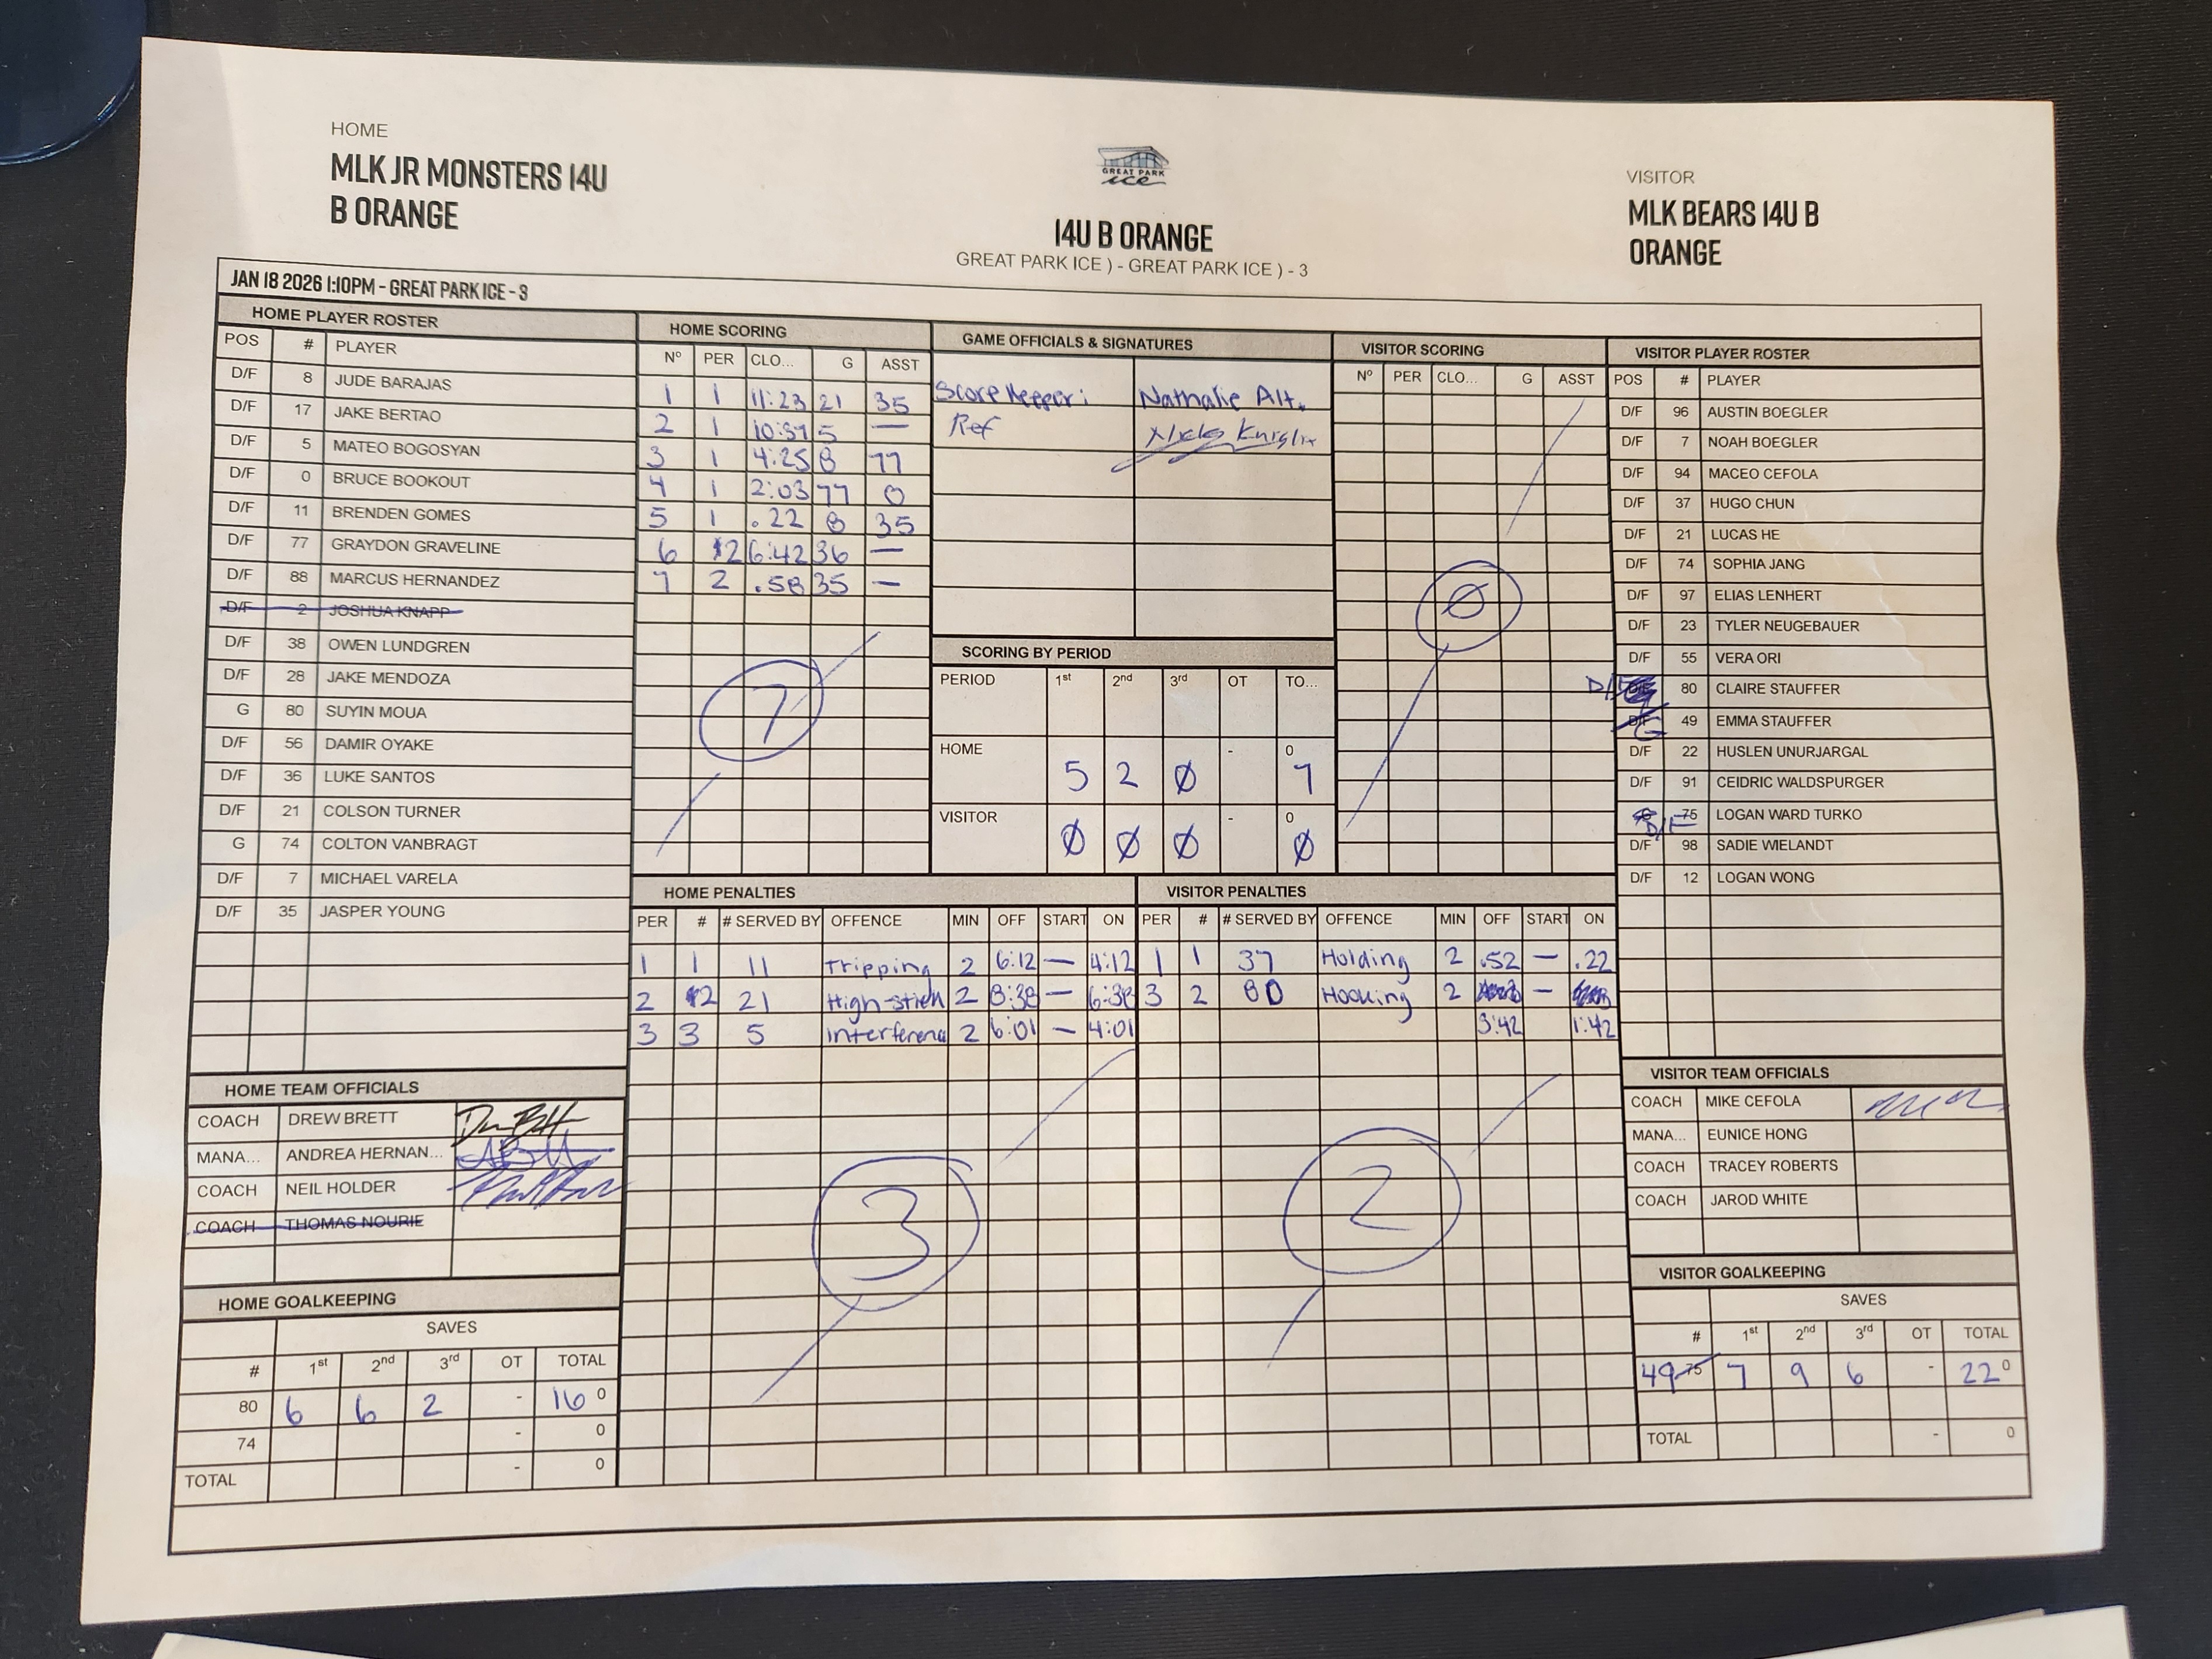 HOME
MLK JR MONSTERS 14U
B ORANGE
GREAT PARK
ice
14U B ORANGE
GREAT PARK ICE ) - GREAT PARK ICE ) - 3
VISITOR
MLK BEARS 14U B
ORANGE
JAN 18 2026 1:10PM - GREAT PARK ICE - 3
HOME PLAYER ROSTER
POS # PLAYER
D/F 8 JUDE BARAJAS
D/F 17 JAKE BERTAO
D/F 5 MATEO BOGOSYAN
D/F 0 BRUCE BOOKOUT
D/F 11 BRENDEN GOMES
D/F 77 GRAYDON GRAVELINE
D/F 88 MARCUS HERNANDEZ
D/F 2 JOSHUA KNAPP
D/F 38 OWEN LUNDGREN
D/F 28 JAKE MENDOZA
G 80 SUYIN MOUA
D/F 56 DAMIR OYAKE
D/F 36 LUKE SANTOS
D/F 21 COLSON TURNER
G 74 COLTON VANBRAGT
D/F 7 MICHAEL VARELA
D/F 35 JASPER YOUNG
HOME SCORING
Nº PER CLO... G ASST
1 1 11:23 21 35
2 1 10:37 5 —
3 1 4:25 8 77
4 1 2:03 77 8
5 1 .22 8 35
6 2 6:42 36 —
7 2 .58 35 —
7
GAME OFFICIALS & SIGNATURES
Scorekeeper: Nathalie Alt.
Ref
SCORING BY PERIOD
PERIOD 1st 2nd 3rd OT TO...
HOME 5 2 Ø - 0 7
VISITOR Ø Ø Ø - 0 Ø
VISITOR SCORING
Nº PER CLO... G ASST
Ø
VISITOR PLAYER ROSTER
POS # PLAYER
D/F 96 AUSTIN BOEGLER
D/F 7 NOAH BOEGLER
D/F 94 MACEO CEFOLA
D/F 37 HUGO CHUN
D/F 21 LUCAS HE
D/F 74 SOPHIA JANG
D/F 97 ELIAS LENHERT
D/F 23 TYLER NEUGEBAUER
D/F 55 VERA ORI
D/F 80 CLAIRE STAUFFER
D/F G 49 EMMA STAUFFER
D/F 22 HUSLEN UNURJARGAL
D/F 91 CEIDRIC WALDSPURGER
D/F 75 LOGAN WARD TURKO
D/F 98 SADIE WIELANDT
D/F 12 LOGAN WONG
HOME PENALTIES
PER # # SERVED BY OFFENCE MIN OFF START ON
1 1 11 Tripping 2 6:12 — 4:12
2 2 21 High-stick 2 8:38 — 6:38
3 3 5 Interference 2 6:01 — 4:01
3
VISITOR PENALTIES
PER # # SERVED BY OFFENCE MIN OFF START ON
1 1 37 Holding 2 .52 — .22
3 2 80 Hooking 2 —
3:42 1:42
2
HOME TEAM OFFICIALS
COACH DREW BRETT
MANA... ANDREA HERNAN...
COACH NEIL HOLDER
COACH THOMAS NOURIE
HOME GOALKEEPING
SAVES
# 1st 2nd 3rd OT TOTAL
80 6 6 2 - 16 0
74 - 0
TOTAL - 0
VISITOR TEAM OFFICIALS
COACH MIKE CEFOLA
MANA... EUNICE HONG
COACH TRACEY ROBERTS
COACH JAROD WHITE
VISITOR GOALKEEPING
SAVES
# 1st 2nd 3rd OT TOTAL
49 75 7 9 6 - 22 0
TOTAL - 0